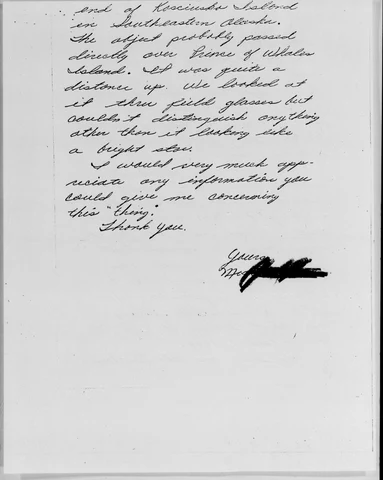 end of Kosciusko Island
in Southeastern Alaska.
The object probably passed
directly over Prince of Whales
Island. It was quite a
distance up. We looked at
it thru field glasses but
couldn't distinguish anything
other then it looking like
a bright star.
I would very much app-
reciate any information you
could give me concerning
this "thing".
Thank you.
Yours